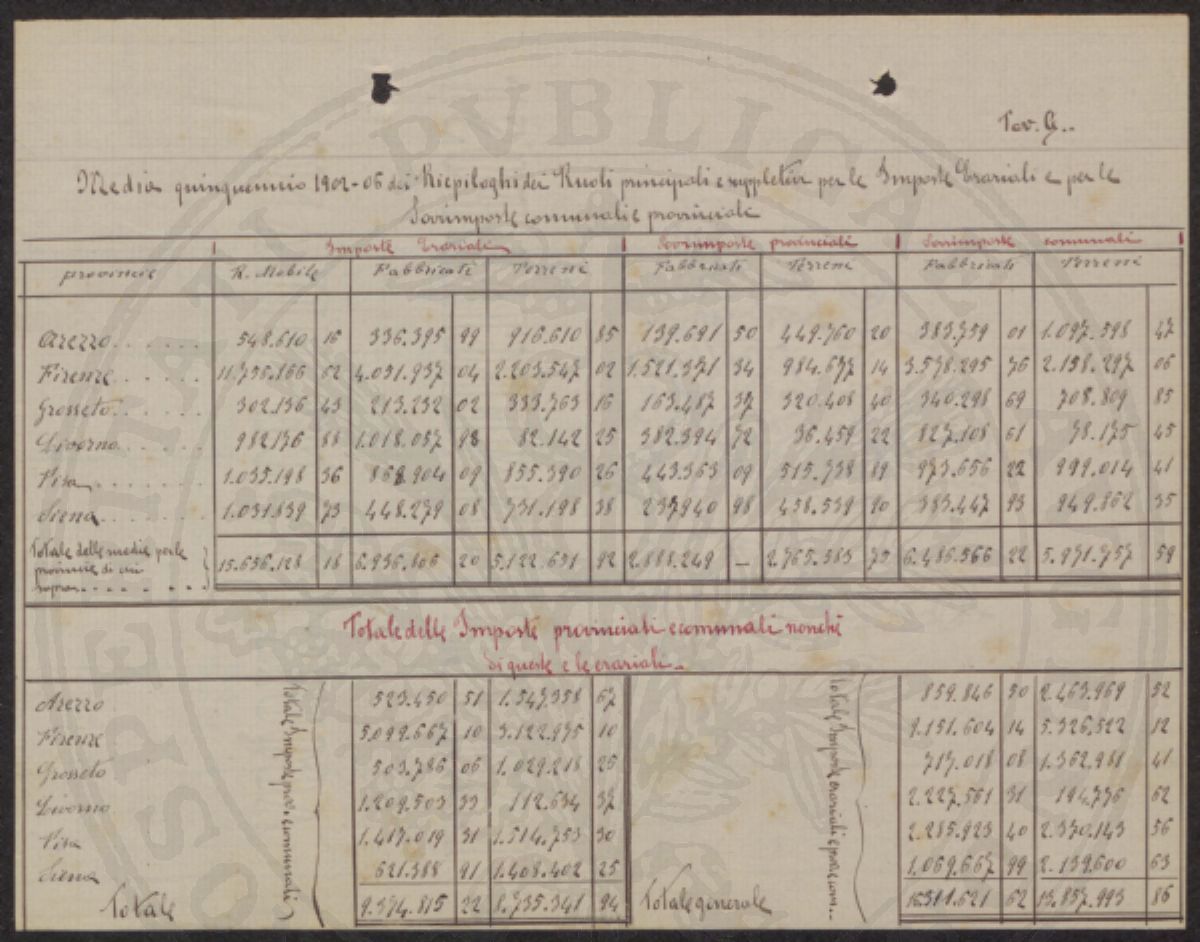 Tav. G..
Media quinquennio 1902-06 dei Riepiloghi dei Ruoli principali e suppletivi per le Imposte Erariali e per le
Sovrimposte comunali e provinciali
Imposte Erariali Sovrimposte provinciali Sovrimposte comunali
provincie R. Mobile Fabbricati Terreni Fabbricati Terreni Fabbricati Terreni
Arezzo....... 548.610 16 336.395 99 916.610 85 139.691 50 449.760 20 383.759 01 1.097.598 47
Firenze...... 11.736.166 62 4.051.937 04 2.203.547 02 1.521.371 34 984.677 14 3.578.295 76 2.138.297 06
Grosseto...... 302.136 43 213.232 02 333.763 16 163.487 37 320.408 40 340.298 69 708.809 85
Livorno...... 982.176 88 1.018.057 98 82.142 25 382.394 72 36.459 22 827.108 61 78.175 45
Pisa........ 1.035.198 36 868.904 09 855.390 26 443.363 09 515.738 89 973.656 22 999.014 41
Siena....... 1.031.839 73 448.279 08 731.198 38 237.940 98 458.539 90 383.447 93 949.862 35
Totale delle medie per le
provincie di cui
sopra........ 15.636.128 18 6.936.806 20 5.122.651 92 2.888.249 — 2.765.583 75 6.486.566 22 5.971.757 59
Totale delle Imposte provinciali e comunali nonchè
di queste e le erariali..
Totale Imposte prov. e comunali
Totale Imposte erariali e prov. com..
Arezzo 523.450 51 1.547.358 67 859.846 50 2.463.969 52
Firenze 5.099.667 10 3.122.975 10 9.151.604 14 5.326.522 12
Grosseto 503.786 06 1.029.218 25 717.018 08 1.362.981 41
Livorno 1.209.503 33 112.634 37 2.227.561 31 194.776 62
Pisa 1.417.019 31 1.514.753 30 2.285.923 40 2.370.143 56
Siena 621.388 91 1.408.402 25 1.069.667 99 2.139.600 63
Totale 9.374.815 22 8.735.341 94 Totale generale 16.311.621 62 13.857.993 86